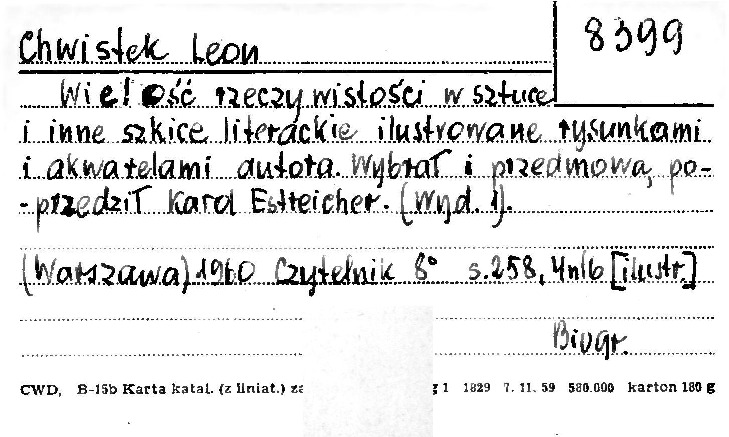 Chwistek Leon
8399
Wielość rzeczywistości w sztuce
i inne szkice literackie ilustrowane rysunkami
i akwarelami autora. Wybrał i przedmową po-
-przedził Karol Estreicher. (Wyd. 1).
(Warszawa) 1960 Czytelnik 8° s.258, 4nlb [ilustr.]
Biogr.
CWD, B-15b Karta katal. (z liniat.) za g 1 1829 7. 11. 59 580.000 karton 180 g